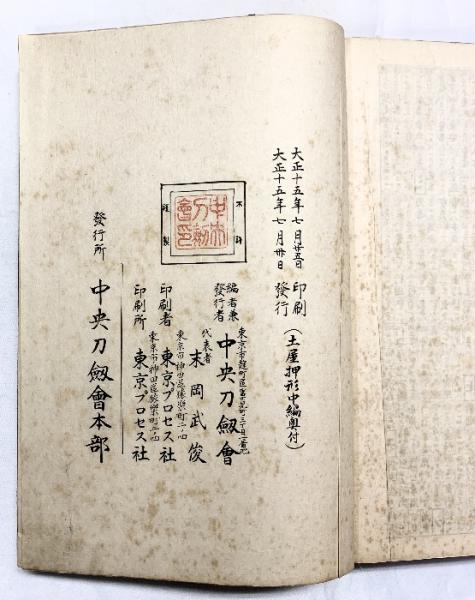 大正十五年七月廿五日 印刷
大正十五年七月卅日 發行
（土屋押形中編奥付）
不許
複製
中央刀劔會印
編者兼發行者
中央刀劔會
代表者 末岡武俊
印刷者
東京プロセス社
印刷所
東京プロセス社
發行所 中央刀劔會本部